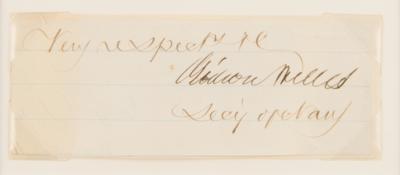 Very respectly &c
Gideon Welles
Secy of Navy